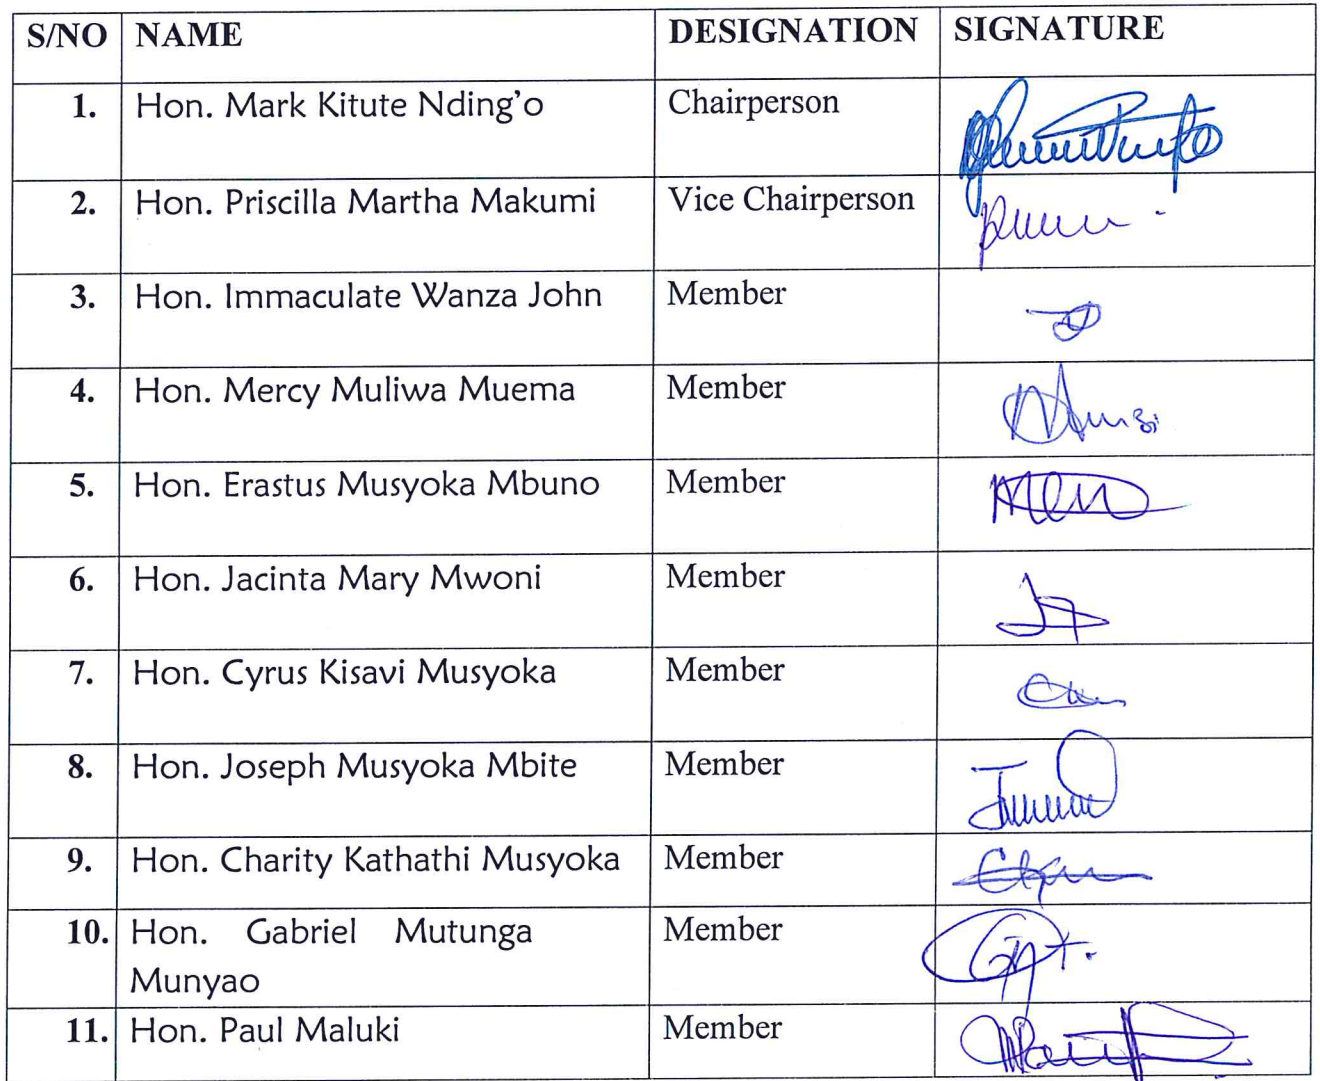 S/NO NAME DESIGNATION SIGNATURE
1. Hon. Mark Kitute Nding'o Chairperson
2. Hon. Priscilla Martha Makumi Vice Chairperson
3. Hon. Immaculate Wanza John Member
4. Hon. Mercy Muliwa Muema Member
5. Hon. Erastus Musyoka Mbuno Member
6. Hon. Jacinta Mary Mwoni Member
7. Hon. Cyrus Kisavi Musyoka Member
8. Hon. Joseph Musyoka Mbite Member
9. Hon. Charity Kathathi Musyoka Member
10. Hon. Gabriel Mutunga Member
Munyao
11. Hon. Paul Maluki Member